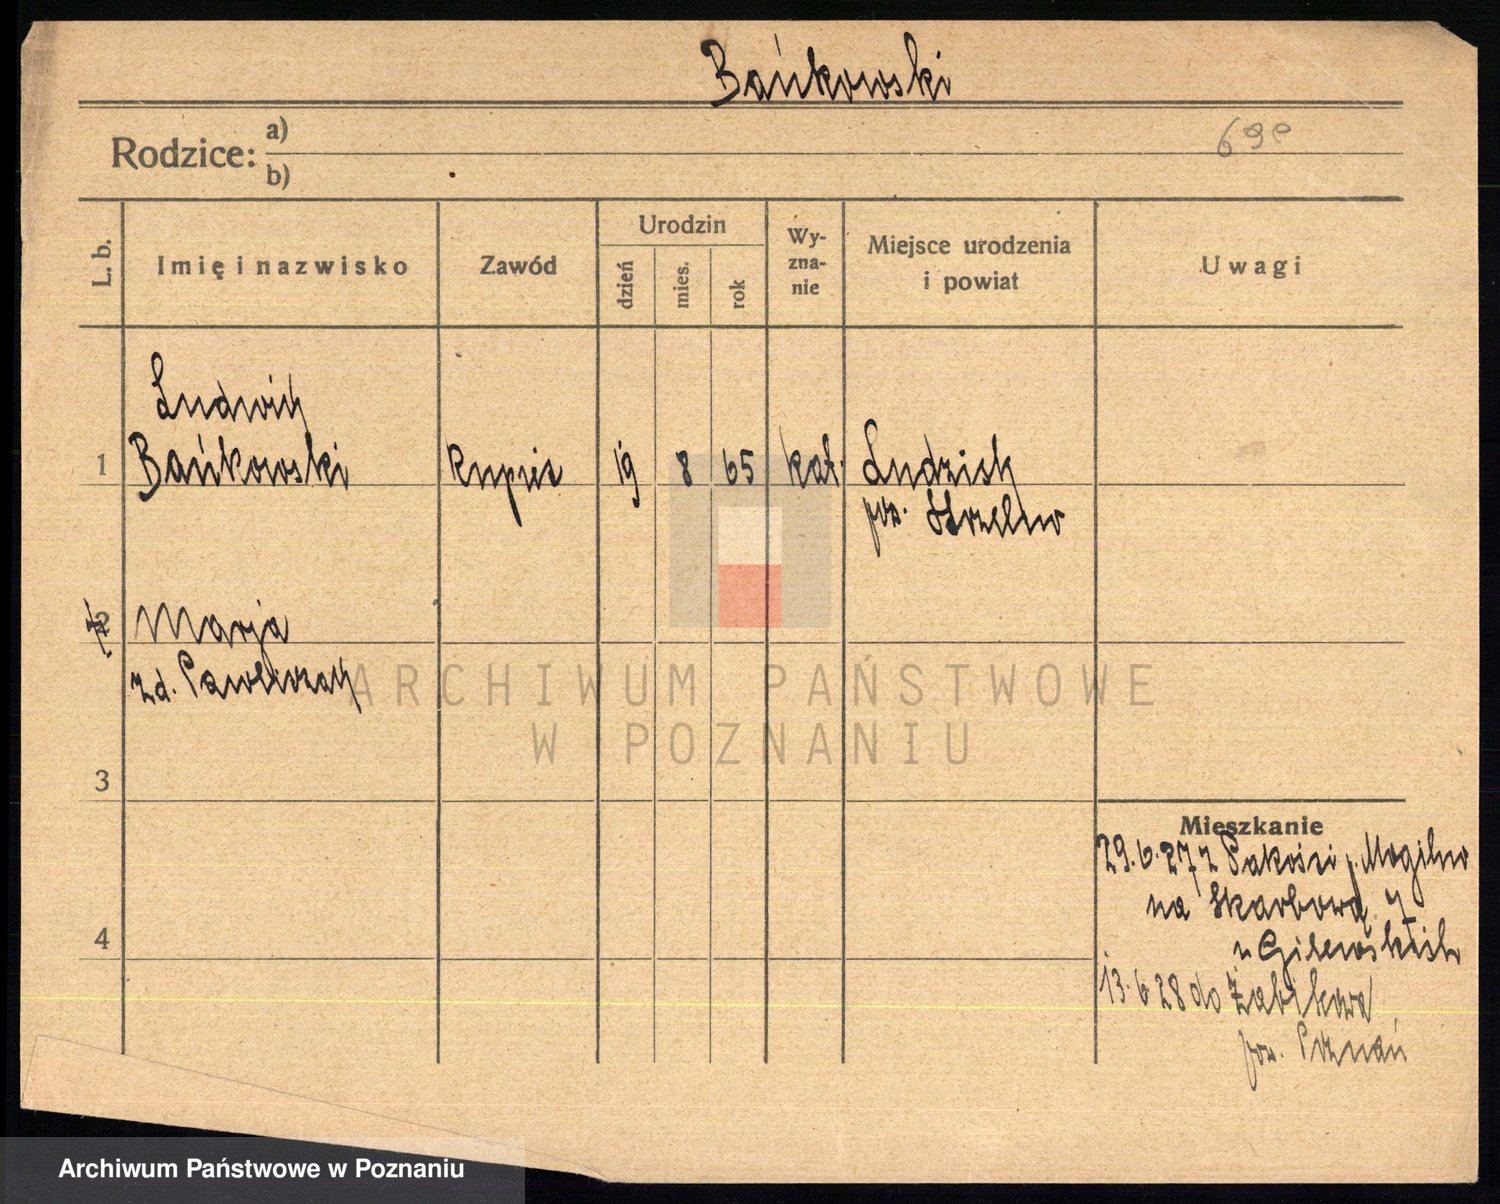 Bańkowski
Rodzice: a)
b)
690
L. b.
Imię i nazwisko
Zawód
Urodzin
dzień
mies.
rok
Wy-
zna-
nie
Miejsce urodzenia
i powiat
Uwagi
Ludwik
1 Bańkowski kupiec 19 8 65 kat. Ludzisk
pow. Strzelno
2 Marja
zd. Pawlewzak
3
4
Mieszkanie
29.6.27 z Pakości p. Mogilno
na Skarbową 7
u Gilewskich
13.6.28 do Żabikowa
pow. Poznań
ARCHIWUM PAŃSTWOWE
W POZNANIU
Archiwum Państwowe w Poznaniu